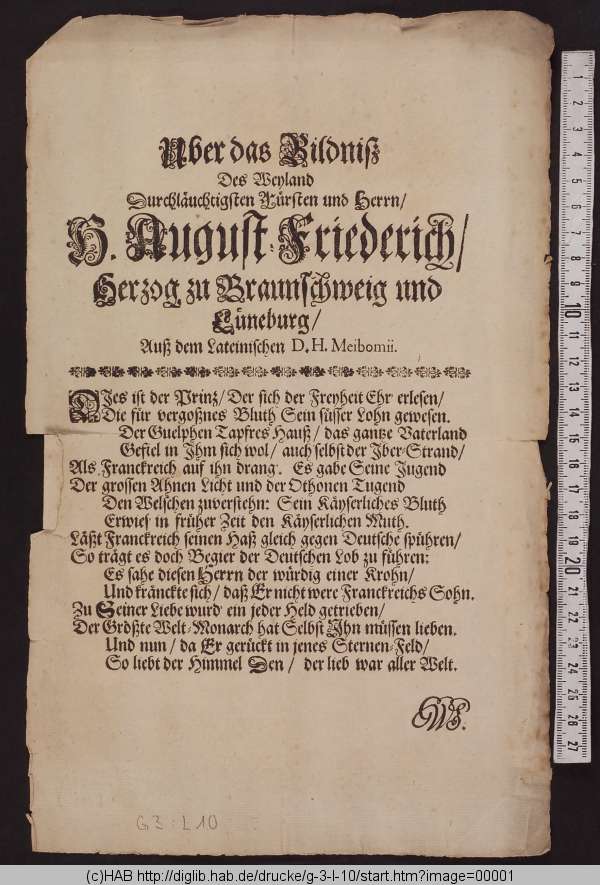 Uber das Bildniß
Des Weyland
Durchläuchtigsten Fürsten und Herrn/
H. August-Friederich/
Herzog zu Braunschweig und
Lüneburg/
Auß dem Lateinischen D. H. Meibomii.
DIes ist der Prinz/ Der sich der Freyheit Ehr erlesen/
Die für vergoßnes Bluth Sein süsser Lohn gewesen.
Der Guelphen Tapfres Hauß/ das gantze Vaterland
Gefiel in Jhn sich wol/ auch selbst der Jber-Strand/
Als Franckreich auf ihn drang. Es gabe Seine Jugend
Der grossen Ahnen Licht und der Othonen Tugend
Den Welschen zuverstehn: Sein Käyserliches Bluth
Erwies in früher Zeit den Käyserlichen Muth.
Läßt Franckreich seinen Haß gleich gegen Deutsche spühren/
So trägt es doch Begier der Deutschen Lob zu führen:
Es sahe diesen Herrn der würdig einer Krohn/
Und kränckte sich/ daß Er nicht were Franckreichs Sohn.
Zu Seiner Liebe wurd' ein jeder Held getrieben/
Der Größte Welt-Monarch hat Selbst Jhn müssen lieben.
Und nun/ da Er gerückt in jenes Sternen-Feld/
So liebt der Himmel Den/ der lieb war aller Welt.
G 3 : L 10
1 2 3 4 5 6 7 8 9 10 11 12 13 14 15 16 17 18 19 20 21 22 23 24 25 26 27
(c)HAB http://diglib.hab.de/drucke/g-3-l-10/start.htm?image=00001